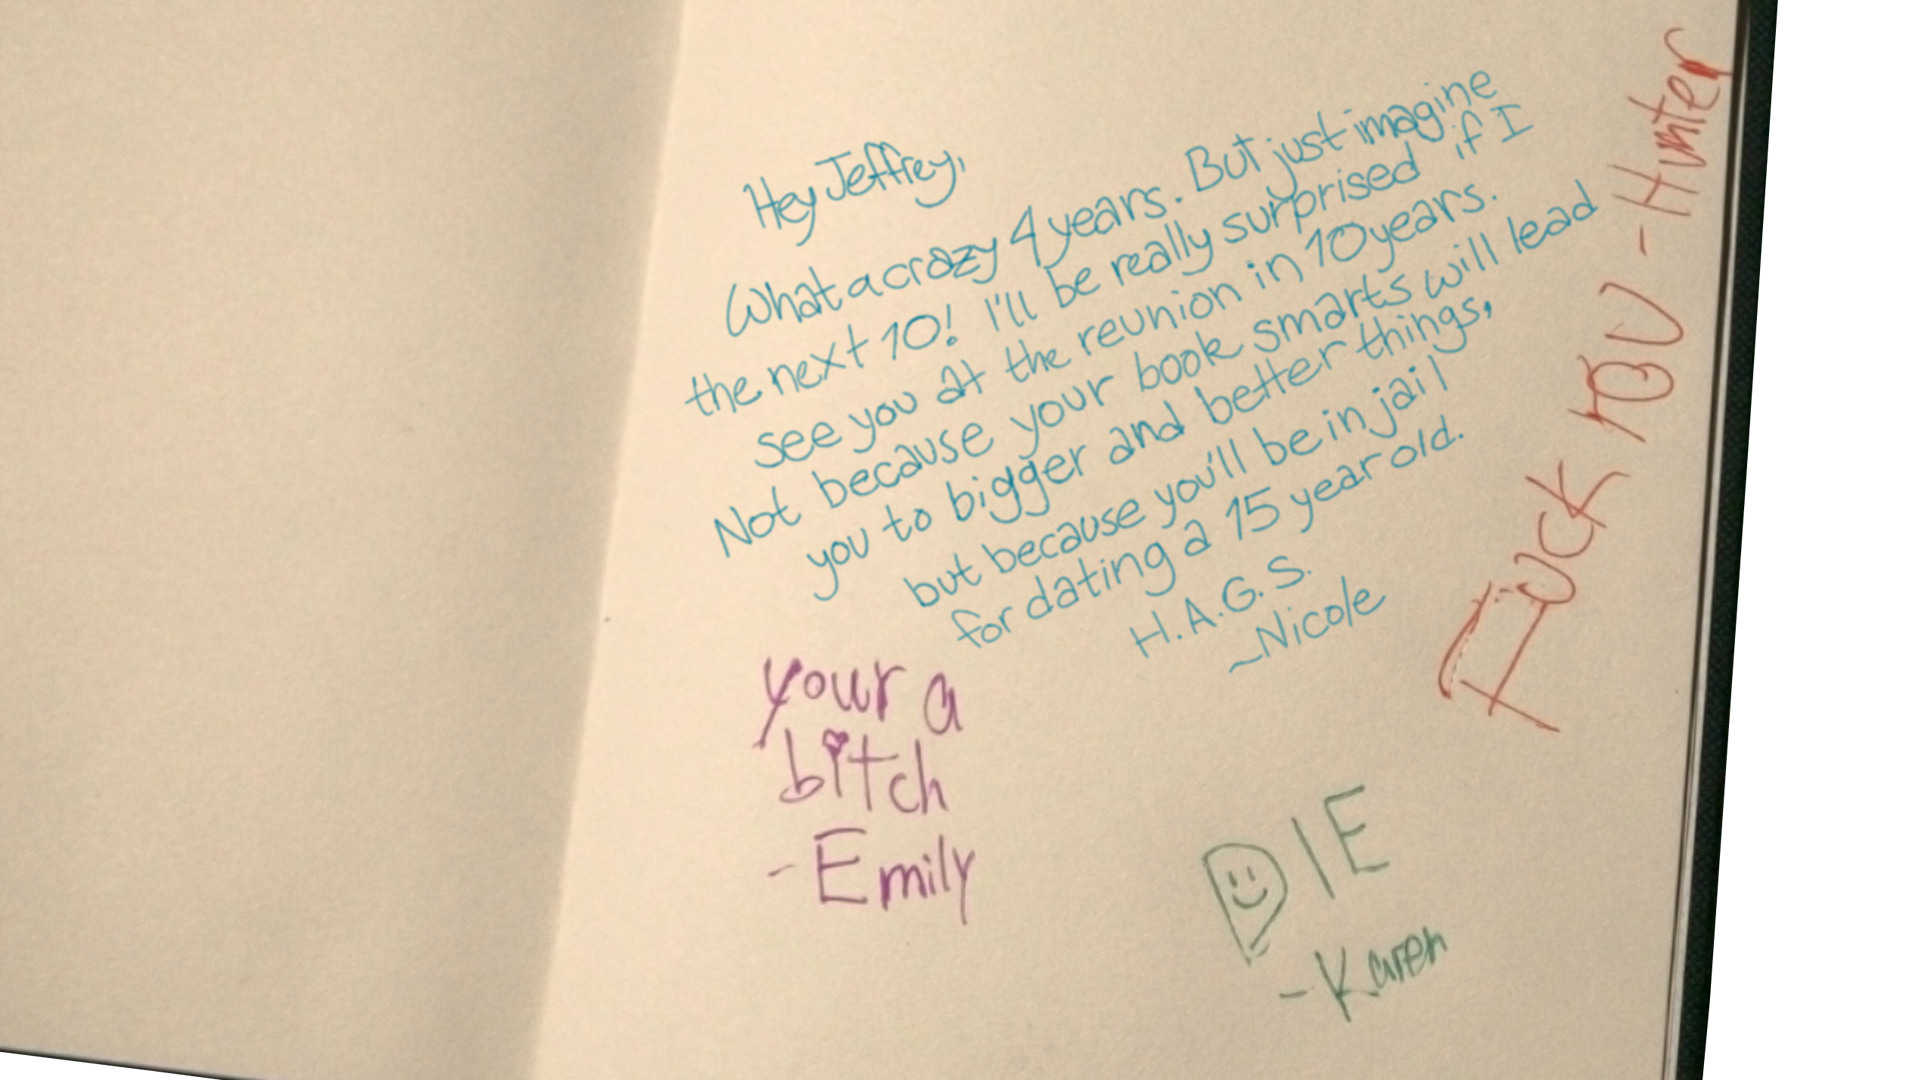 Hey Jeffrey,
What a crazy 4 years. But just imagine
the next 10! I'll be really surprised if I
see you at the reunion in 10 years.
Not because your book smarts will lead
you to bigger and better things,
but because you'll be in jail
for dating a 15 year old.
H.A.G.S.
~Nicole
your a
bitch
-Emily
DIE
-Karen
Fuck YOU -Hunter